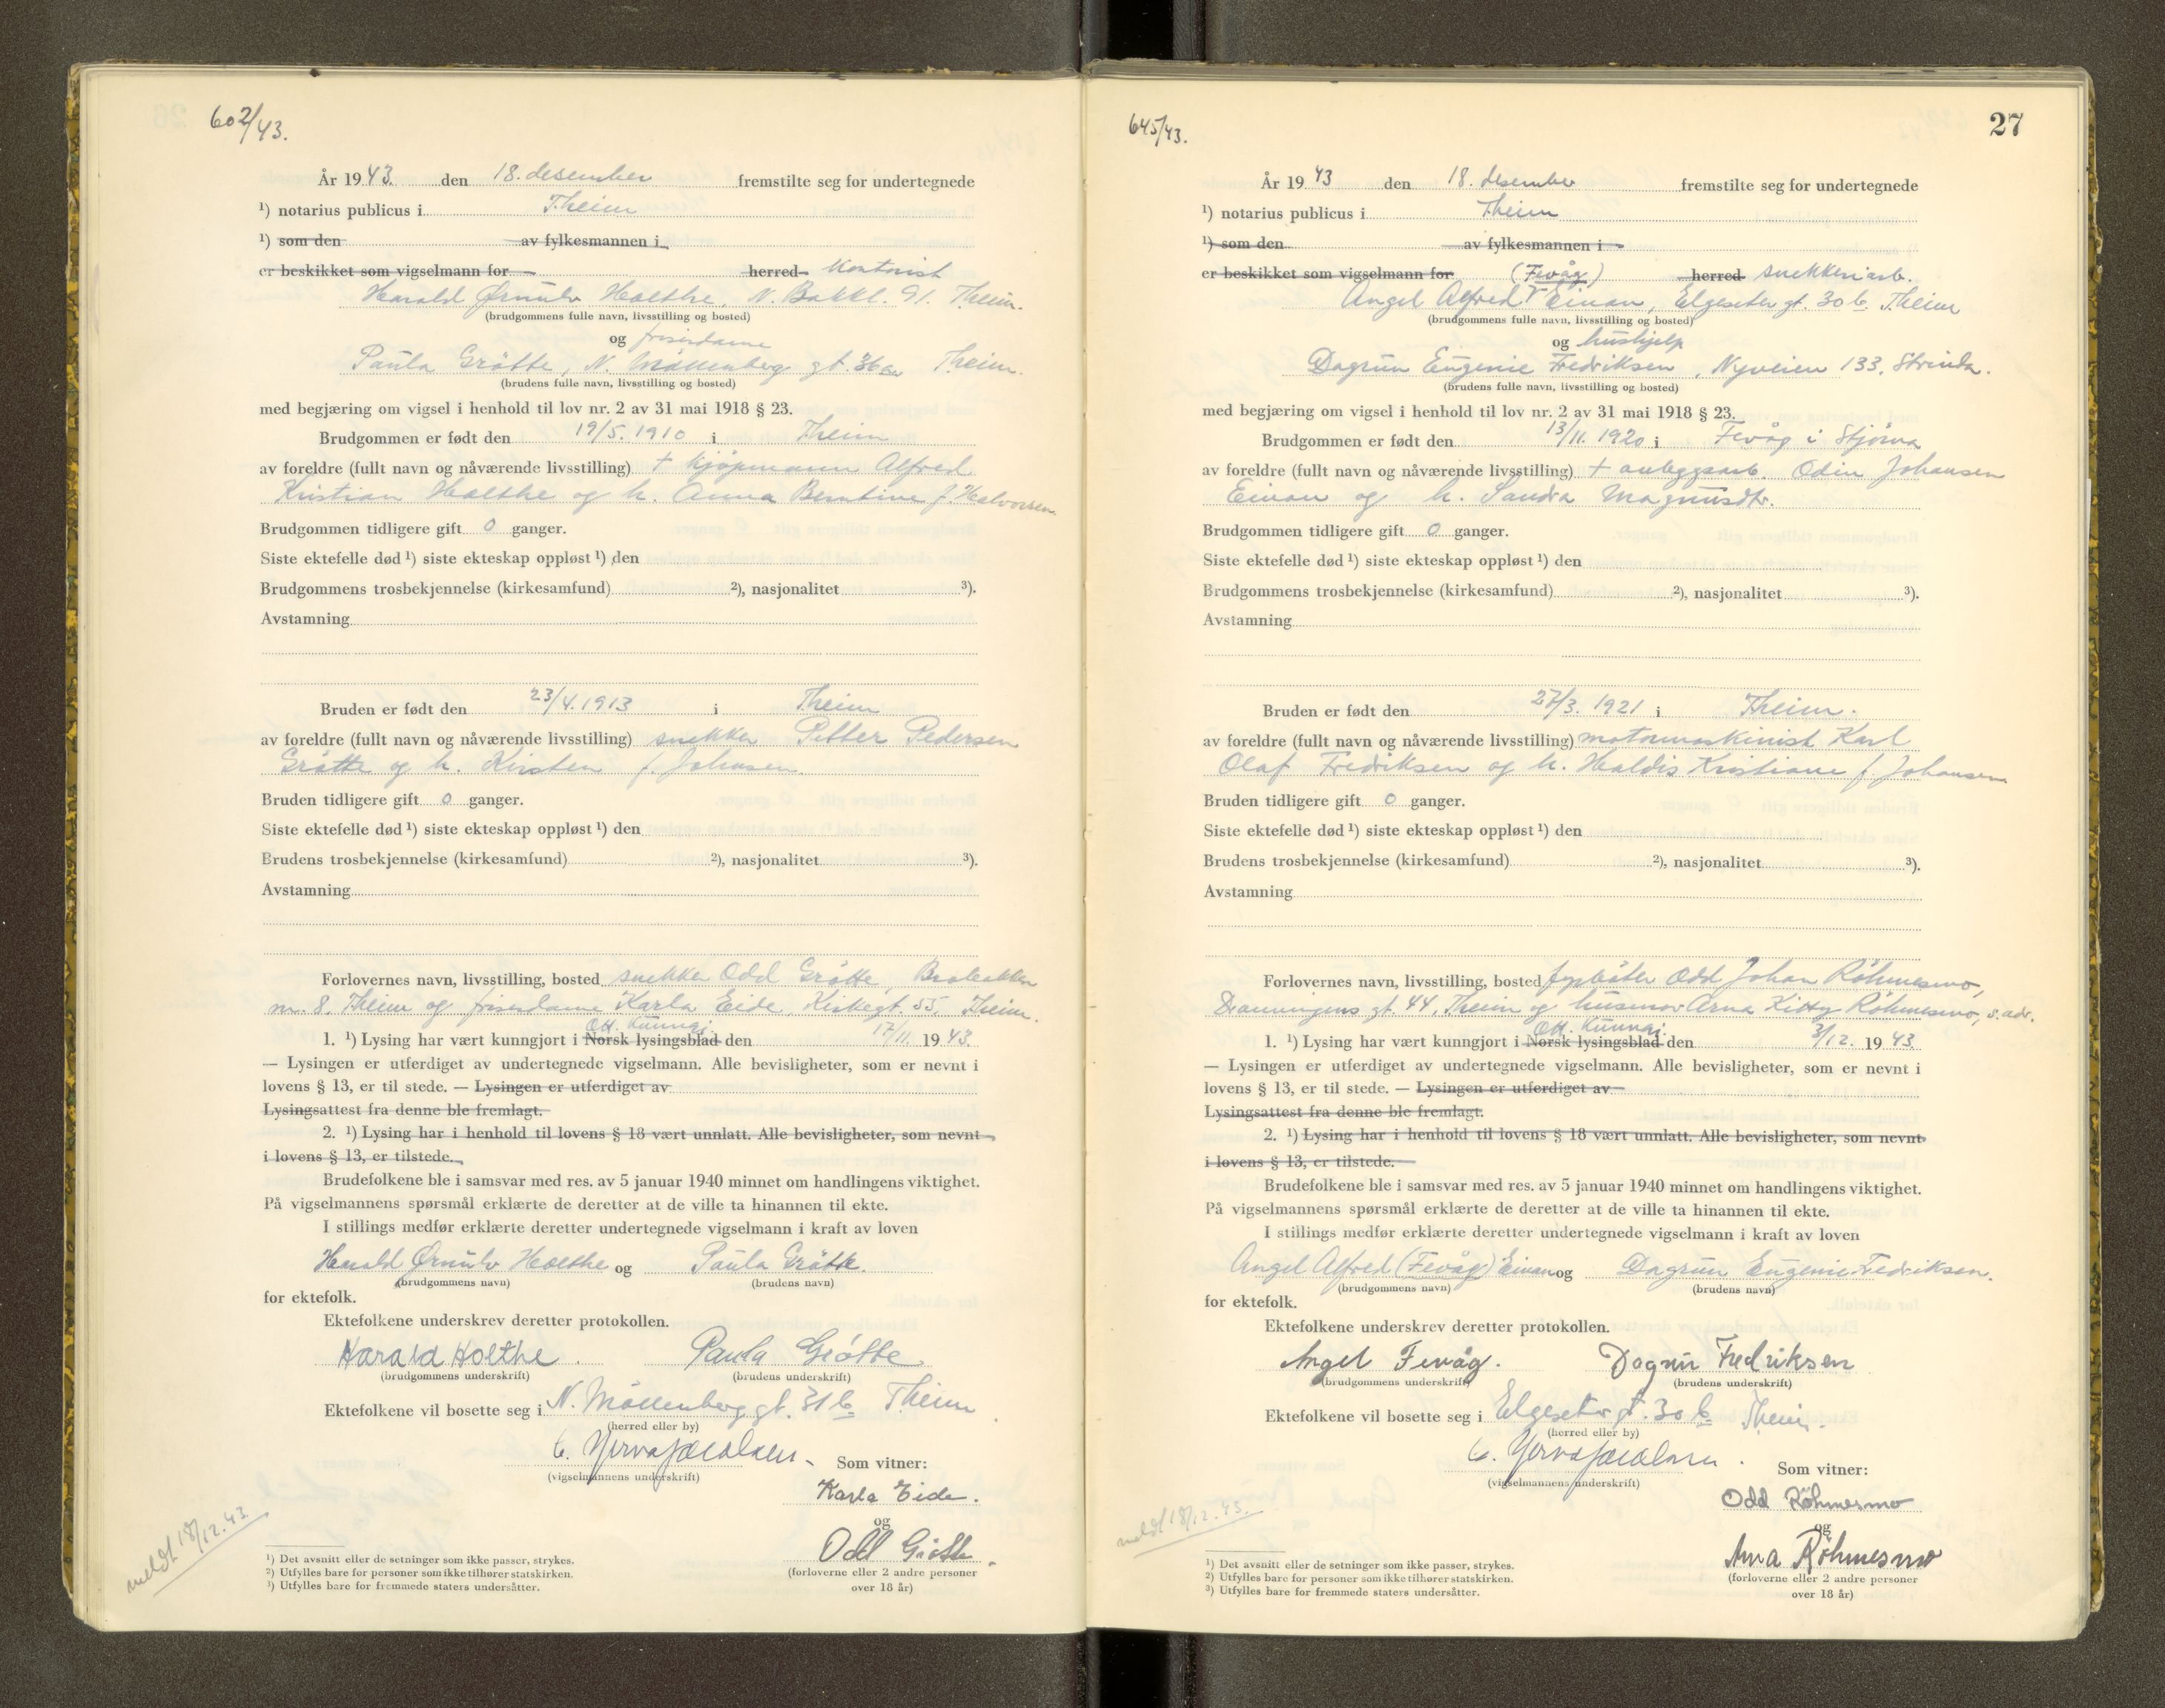 602/43.
År 1943. den 18. desember fremstilte seg for undertegnede
¹) notarius publicus i Theim
¹) som den av fylkesmannen i
er beskikket som vigselmann for herred kontorist
Harald Ørnulv Holthe, N. Bakkl. 91. Theim.
(brudgommens fulle navn, livsstilling og bosted)
og frisørdame
Paula Gråtte, N. Möllenberg gt. 36a Theim.
(brudens fulle navn, livsstilling og bosted)
med begjæring om vigsel i henhold til lov nr. 2 av 31 mai 1918 § 23.
Brudgommen er født den 19/5. 1910 i Theim
av foreldre (fullt navn og nåværende livsstilling) + kjøpmann Alfred
Kristian Holthe og h. Anna Berntine f. Halvorsen.
Brudgommen tidligere gift 0 ganger.
Siste ektefelle død ¹) siste ekteskap oppløst ¹) den
Brudgommens trosbekjennelse (kirkesamfund) ²), nasjonalitet ³).
Avstamning
Bruden er født den 23/4. 1913 i Theim
av foreldre (fullt navn og nåværende livsstilling) snekker Petter Pedersen
Gråtte og h. Kirsten f. Johnsen.
Bruden tidligere gift 0 ganger.
Siste ektefelle død ¹) siste ekteskap oppløst ¹) den
Brudens trosbekjennelse (kirkesamfund) ²), nasjonalitet ³).
Avstamning
Forlovernes navn, livsstilling, bosted snekker Odd Gråtte,
nr. 8. Theim og frisørdame Karla Eide, Kirkegt. 55, Theim.
Off. kunngj.
1. ¹) Lysing har vært kunngjort i Norsk lysingsblad den 17/11. 1943.
— Lysingen er utferdiget av undertegnede vigselmann. Alle bevisligheter, som er nevnt i
lovens § 13, er til stede. — Lysingen er utferdiget av
Lysingsattest fra denne ble fremlagt.
2. ¹) Lysing har i henhold til lovens § 18 vært unnlatt. Alle bevisligheter, som nevnt
i lovens § 13, er tilstede.
Brudefolkene ble i samsvar med res. av 5 januar 1940 minnet om handlingens viktighet.
På vigselmannens spørsmål erklærte de deretter at de ville ta hinannen til ekte.
I stillings medfør erklærte deretter undertegnede vigselmann i kraft av loven
Harald Ørnulv Holthe og Paula Gråtte.
(brudgommens navn) (brudens navn)
for ektefolk.
Ektefolkene underskrev deretter protokollen.
Harald Holthe. Paula Gråtte.
(brudgommens underskrift) (brudens underskrift)
Ektefolkene vil bosette seg i N. Möllenberg gt. 31b Theim
(herred eller by)
Som vitner:
(vigselmannens underskrift)
Karla Eide.
og
Odd Gråtte.
(forloverne eller 2 andre personer
over 18 år)
meldt 18/12.43.
¹) Det avsnitt eller de setninger som ikke passer, strykes.
²) Utfylles bare for personer som ikke tilhører statskirken.
³) Utfylles bare for fremmede staters undersåtter.
27
645/43.
År 1943 den 18. desember fremstilte seg for undertegnede
¹) notarius publicus i Theim
¹) som den av fylkesmannen i
er beskikket som vigselmann for (Fevåg) herred snekkeriarb.
Angel Alfred Einan, Elgeseter gt. 30b. Theim
(brudgommens fulle navn, livsstilling og bosted)
og hushjelp
Dagrun Eugenie Fredriksen, Nyveien 133, Strinda.
(brudens fulle navn, livsstilling og bosted)
med begjæring om vigsel i henhold til lov nr. 2 av 31 mai 1918 § 23.
Brudgommen er født den 13/11. 1920 i Fevåg i Stjørna
av foreldre (fullt navn og nåværende livsstilling) + anleggsarb. Odin Johansen
Einan og h. Sandra Magnusdtr.
Brudgommen tidligere gift 0 ganger.
Siste ektefelle død ¹) siste ekteskap oppløst ¹) den
Brudgommens trosbekjennelse (kirkesamfund) ²), nasjonalitet ³).
Avstamning
Bruden er født den 27/3. 1921 i Theim.
av foreldre (fullt navn og nåværende livsstilling) motormaskinist Karl
Olaf Fredriksen og h. Haldis Kristiane f. Johansen
Bruden tidligere gift 0 ganger.
Siste ektefelle død ¹) siste ekteskap oppløst ¹) den
Brudens trosbekjennelse (kirkesamfund) ²), nasjonalitet ³).
Avstamning
Forlovernes navn, livsstilling, bosted fyrbøter Odd Johan Röhmesmo,
gt. 44, Theim og husmor Arna Kitty Röhmesmo, s. adr.
Off. kunngj.
1. ¹) Lysing har vært kunngjort i Norsk lysingsblad den 3/12. 1943.
— Lysingen er utferdiget av undertegnede vigselmann. Alle bevisligheter, som er nevnt i
lovens § 13, er til stede. — Lysingen er utferdiget av
Lysingsattest fra denne ble fremlagt.
2. ¹) Lysing har i henhold til lovens § 18 vært unnlatt. Alle bevisligheter, som nevnt
i lovens § 13, er tilstede.
Brudefolkene ble i samsvar med res. av 5 januar 1940 minnet om handlingens viktighet.
På vigselmannens spørsmål erklærte de deretter at de ville ta hinannen til ekte.
I stillings medfør erklærte deretter undertegnede vigselmann i kraft av loven
Angel Alfred (Fevåg) Einan og Dagrun Eugenie Fredriksen.
(brudgommens navn) (brudens navn)
for ektefolk.
Ektefolkene underskrev deretter protokollen.
Angel Fevåg. Dagrun Fredriksen
(brudgommens underskrift) (brudens underskrift)
Ektefolkene vil bosette seg i Elgeseter gt. 30b Theim.
(herred eller by)
Som vitner:
(vigselmannens underskrift)
Odd Röhmesmo
og
Arna Röhmesmo
(forloverne eller 2 andre personer
over 18 år)
meldt 18/12.43.
¹) Det avsnitt eller de setninger som ikke passer, strykes.
²) Utfylles bare for personer som ikke tilhører statskirken.
³) Utfylles bare for fremmede staters undersåtter.